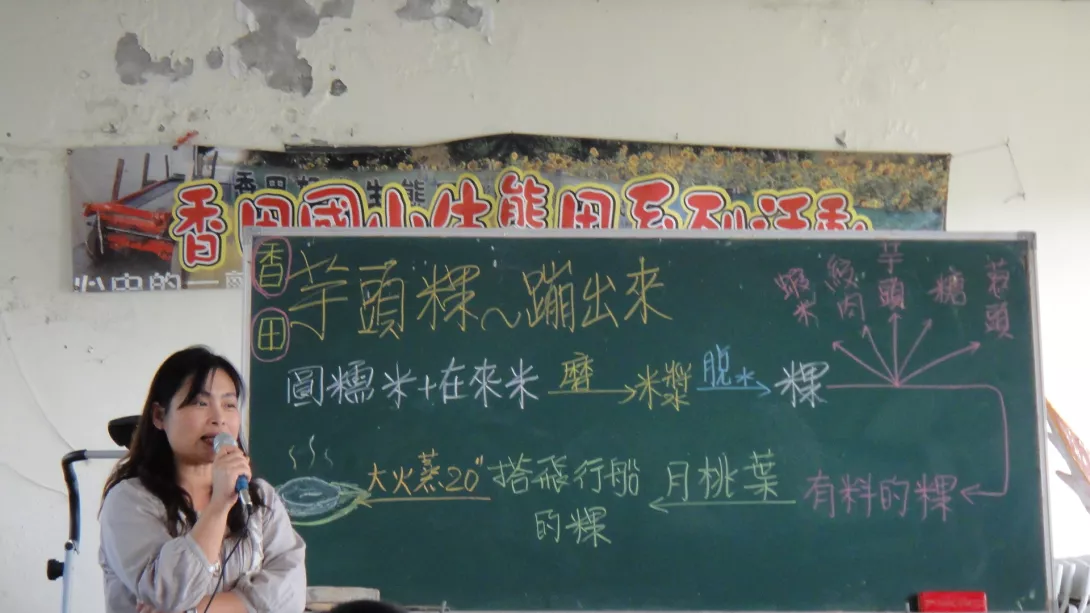 香田國小生態田系列活動
心中的一畝
香田
芋頭粿~蹦出來
蝦米 絞肉 芋頭 糖 菜頭
圓糯米+在來米 磨 米漿 脫水 粿
大火蒸20" 搭飛行船的粿 月桃葉 有料的粿